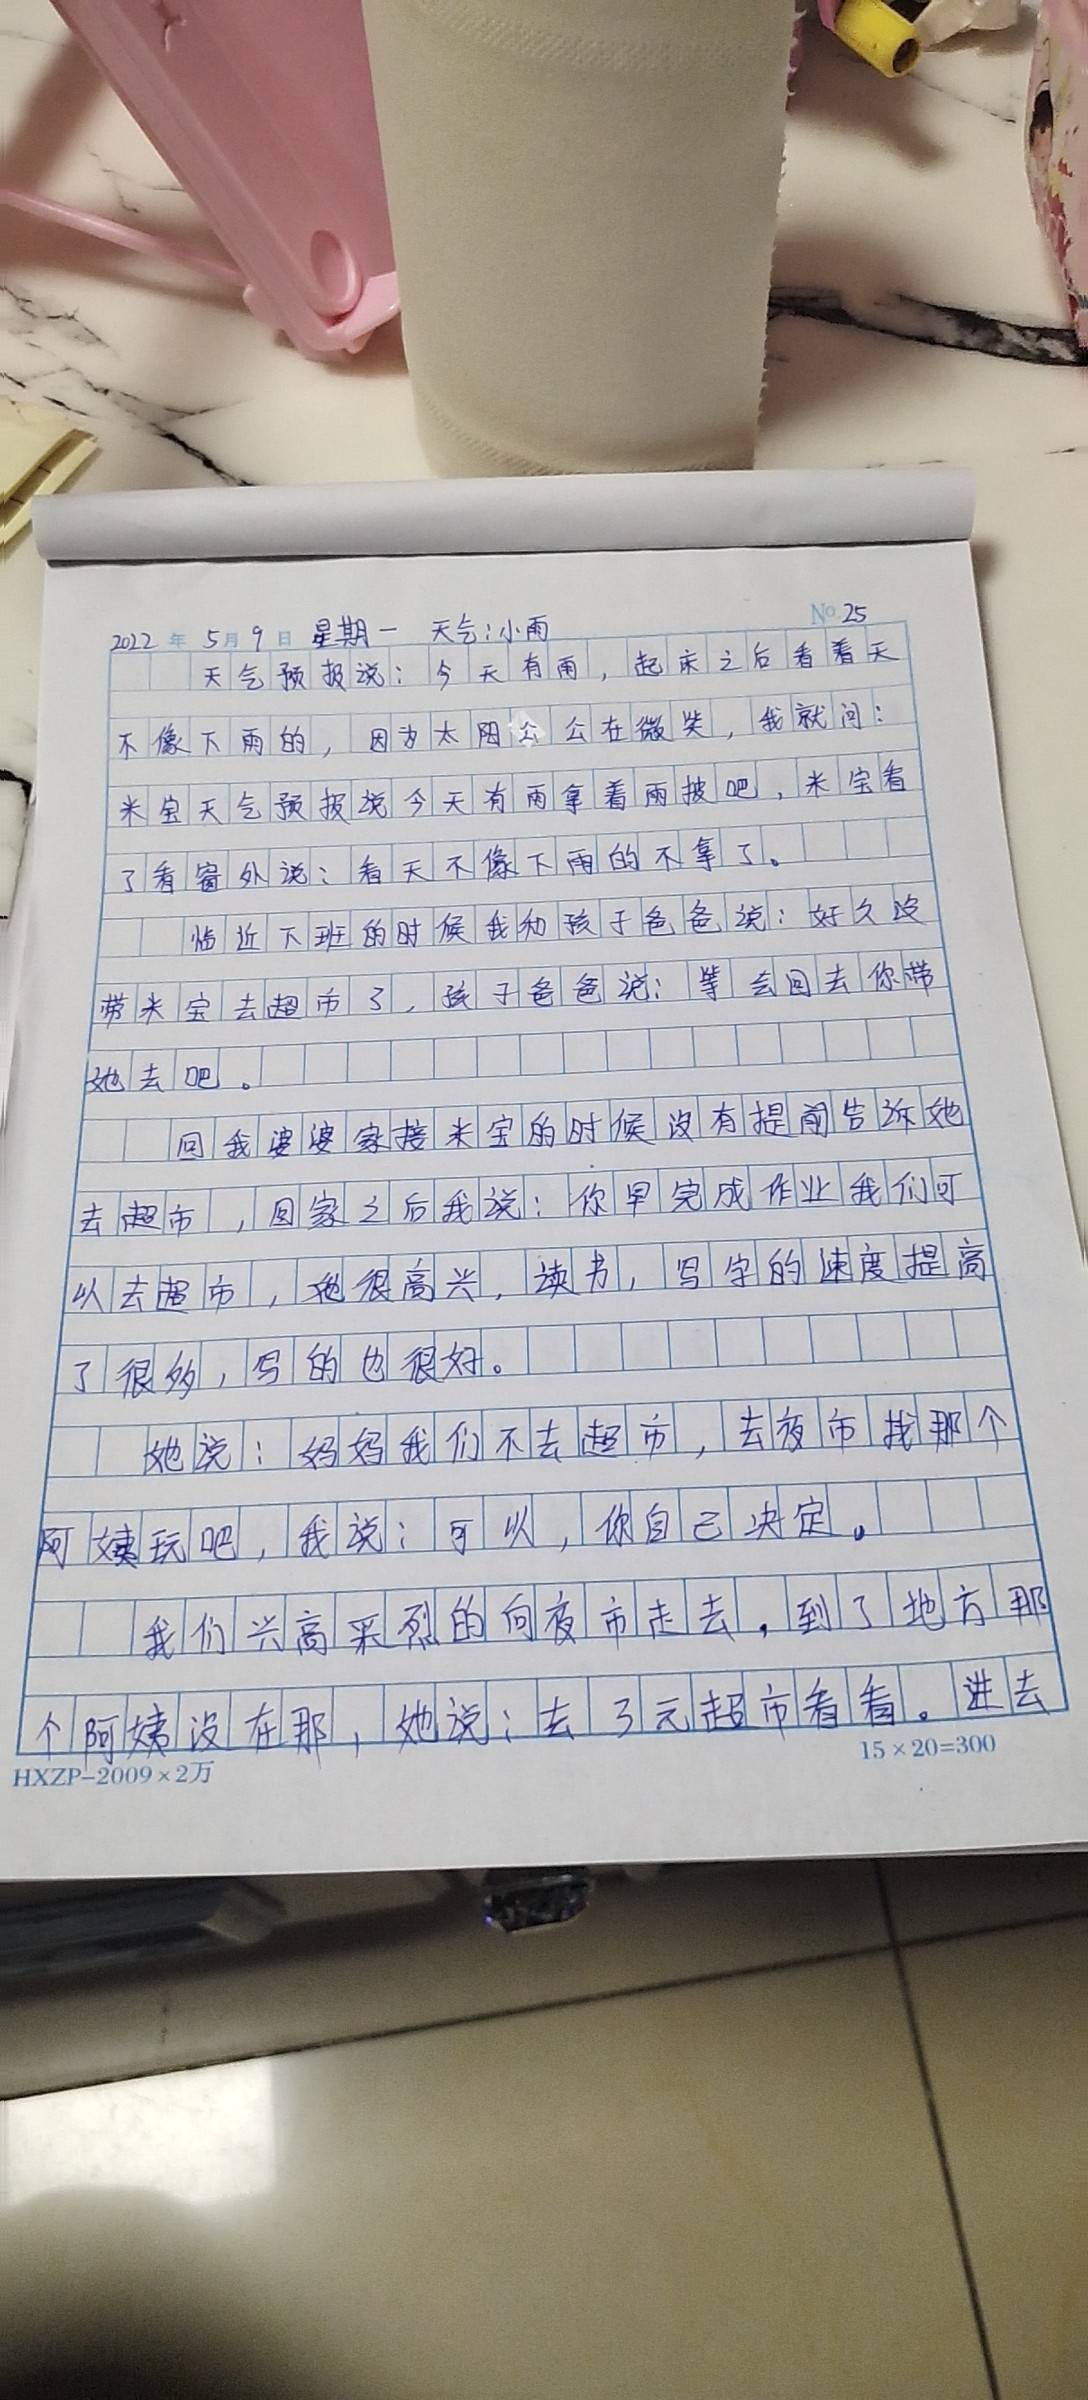 No 25
2022 年 5 月 9 日 星期一 天气:小雨
天气预报说:今天有雨,起床之后看看天
不像下雨的,因为太阳公公在微笑,我就问:
米宝天气预报说今天有雨拿着雨披吧,米宝看
了看窗外说:看天不像下雨的不拿了。
临近下班的时候我和孩子爸爸说:好久没
带米宝去超市了,孩子爸爸说:等会回去你带
她去吧。
回我婆婆家接米宝的时候没有提前告诉她
去超市,回家之后我说:你早完成作业我们可
以去超市,她很高兴,读书,写字的速度提高
了很多,写的也很好。
她说:妈妈我们不去超市,去夜市找那个
阿姨玩吧,我说:可以,你自己决定。
我们兴高采烈的向夜市走去,到了地方那
个阿姨没在那,她说:去3元超市看看。进去
HXZP-2009×2万
15×20=300